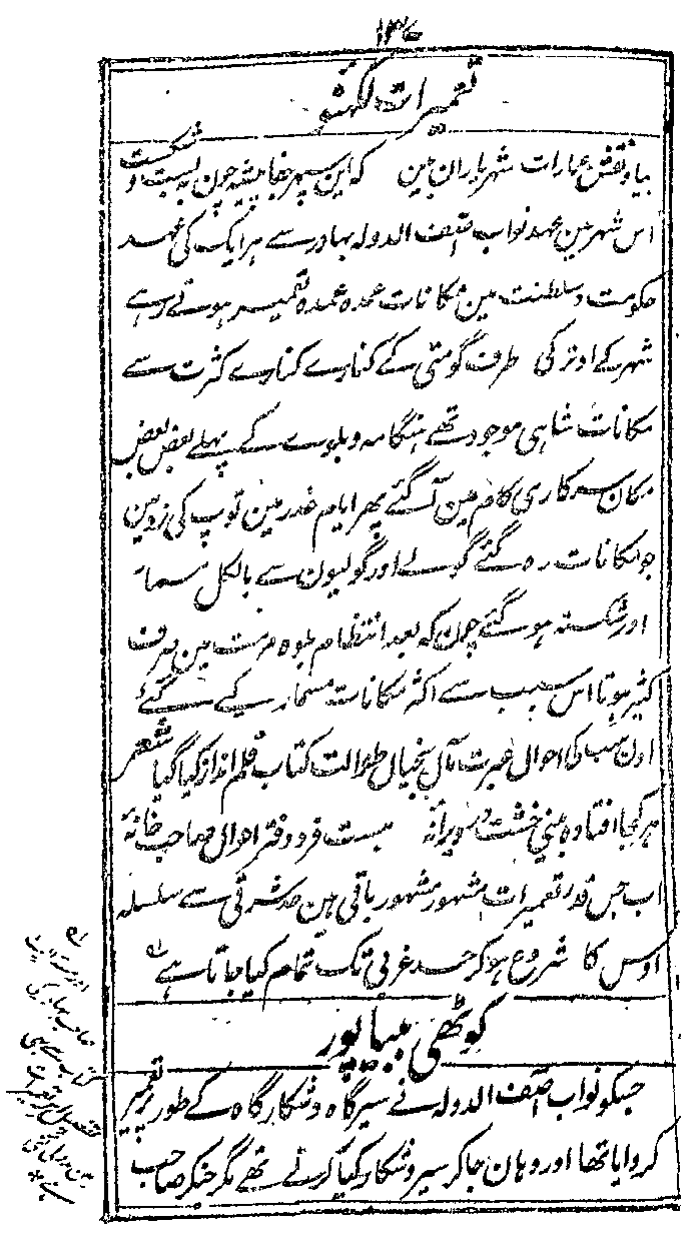 ۱۳۶
تعمیرات لکھنؤ
بیا و نقش عمارات شہریاران بین کہ این سپہر جفا پیشہ چون بہ بست و شکست
اس شہر مین عہد نواب آصف الدولہ بہادر سے ہر ایک کی عہد
حکومت و سلطنت مین مکانات عمدہ عمدہ تعمیر ہوتے رہے
شہر کے اوتر کی طرف گومتی کے کنارے کنارے کثرت سے
مکانات شاہی موجود تھے ہنگامہ و بلوے کے پہلے بعض بعض
مکان سرکاری کام مین آگئے پھر ایام غدر مین توپ کی زد مین
جو مکانات رہ گئے گولے اور گولیون سے بالکل مسمار
اور شکستہ ہوگئے چون کہ بعد انتظام جلوہ مرمت مین صرف
کثیر ہوتا اس سبب سے اکثر مکانات مسمار کیے گئے
اون سب کا احوال عبرت مآل بخیال طوالت کتاب قلم انداز کیا گیا شعر
ہر کجا افتادہ بینی خشت در ویرانہ ہست فرد دفتر احوال صاحب خانہ
اب جس قدر تعمیرات مشہور مشہور باقی ہین حد شرقی سے سلسلہ
اوس کا شروع ہوکر حد غربی تک تمام کیا جاتا ہے
کوٹھی بیبیاپور
جسکو نواب آصف الدولہ نے سیرگاہ و شکارگاہ کے طور پر تعمیر
کروایا تھا اور وہان جاکر سیر و شکار کیا کرتے تھے مگر جنکر صاحب